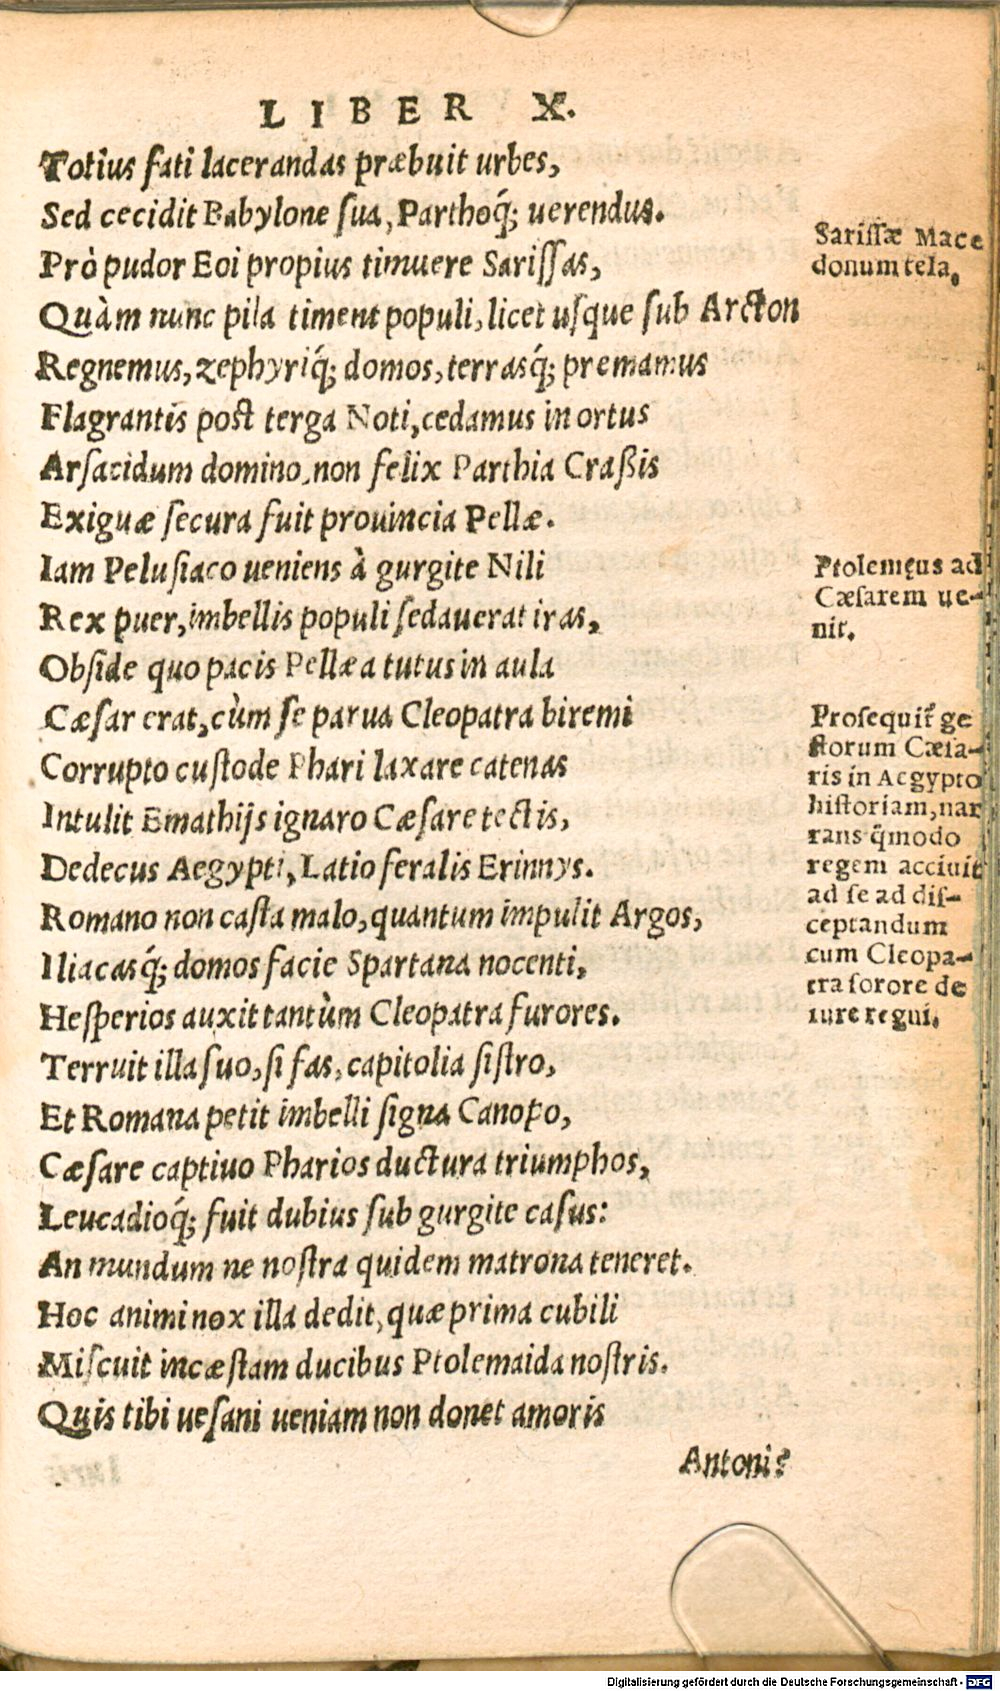 LIBER X.
Totius fati lacerandas præbuit urbes,
Sed cecidit Babylone sua, Parthoq́; uerendus.
Prò pudor Eoi propius timuere Sarissas,
Quàm nunc pila timent populi, licet usque sub Arcton
Regnemus, zephyriq́; domos, terrasq́; premamus
Flagrantis post terga Noti, cedamus in ortus
Arsacidum domino, non felix Parthia Craßis
Exiguæ secura fuit prouincia Pellæ.
Iam Pelusiaco ueniens à gurgite Nili
Rex puer, imbellis populi sedauerat iras,
Obside quo pacis Pellæa tutus in aula
Cæsar erat, cùm se parua Cleopatra biremi
Corrupto custode Phari laxare catenas
Intulit Emathijs ignaro Cæsare tectis,
Dedecus Aegypti, Latio feralis Erinnys.
Romano non casta malo, quantum impulit Argos,
Iliacasq́; domos facie Spartana nocenti,
Hesperios auxit tantùm Cleopatra furores.
Terruit illa suo, si fas, capitolia sistro,
Et Romana petit imbelli signa Canopo,
Cæsare captiuo Pharios ductura triumphos,
Leucadioq́; fuit dubius sub gurgite casus:
An mundum ne nostra quidem matrona teneret.
Hoc animi nox illa dedit, quæ prima cubili
Miscuit incæstam ducibus Ptolemaida nostris.
Quis tibi uesani ueniam non donet amoris
Antoni?
Sarissæ Mace
donum tela.
Ptolemęus ad
Cæsarem ue-
nit.
Prosequit̃ ge
storum Cæsa-
ris in Aegypto
historiam, nar
rans q̃modo
regem acciuit
ad se ad dis-
ceptandum
cum Cleopa-
tra sorore de
iure regni.
Digitalisierung gefördert durch die Deutsche Forschungsgemeinschaft - DFG